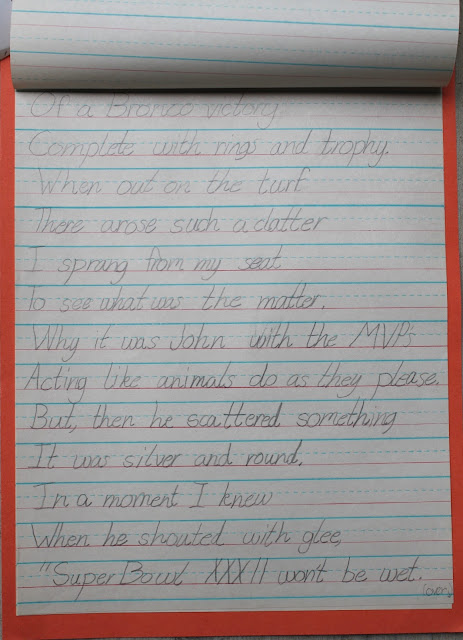 Of a Bronco victory.
Complete with rings and trophy.
When out on the turf
There arose such a clatter
I sprang from my seat
To see what was the matter.
Why it was John with the MVP's
Acting like animals do as they please.
But, then he scattered something
It was silver and round.
In a moment I knew
When he shouted with glee,
"Super Bowl XXXII won't be wet.
(over)